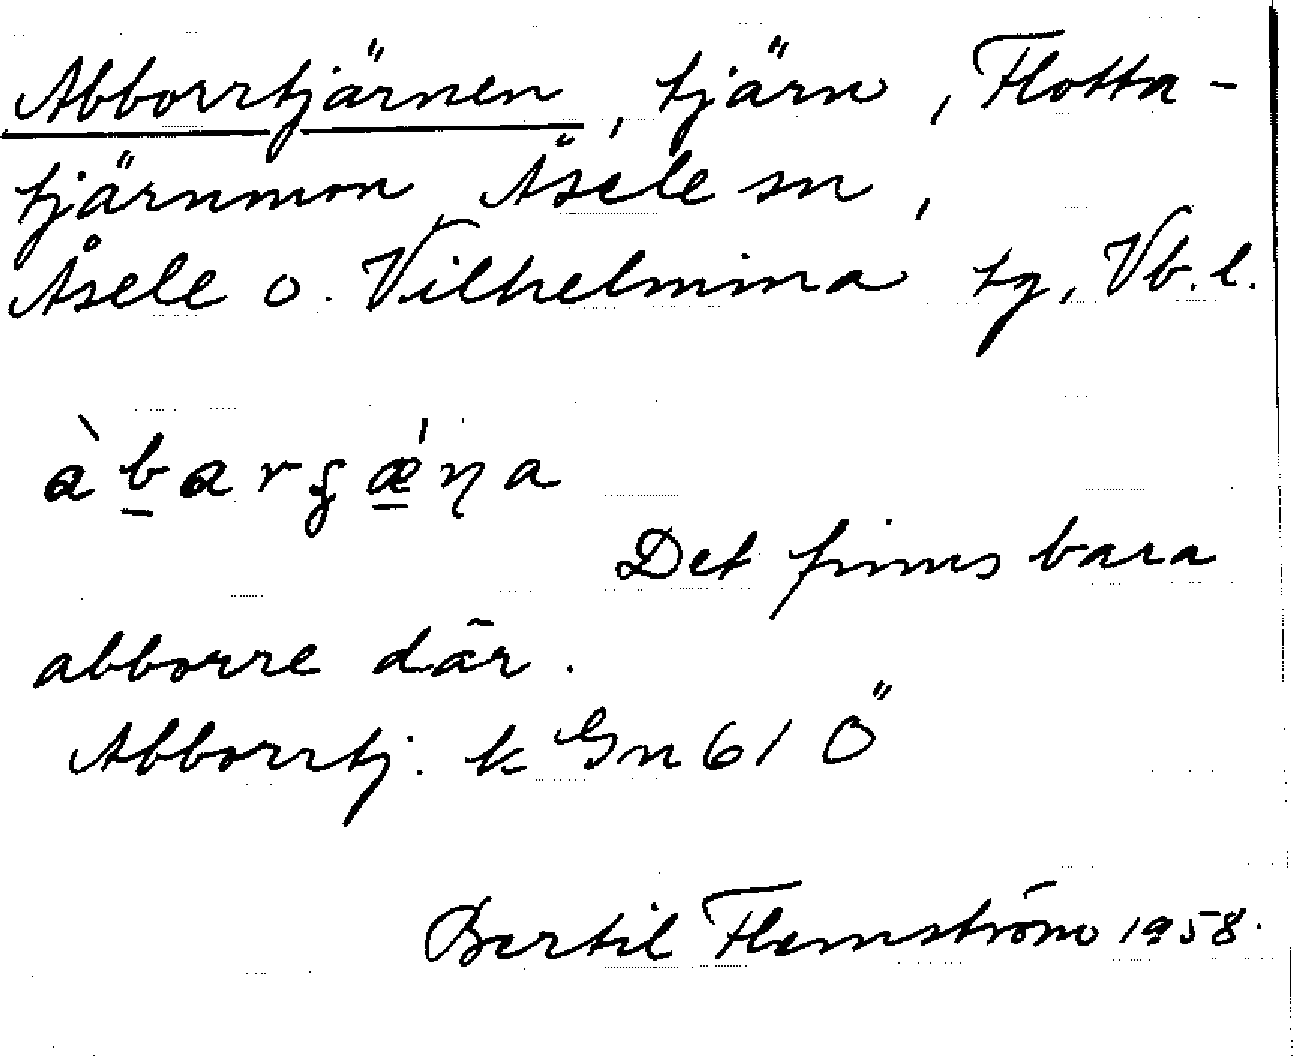 Abborrtjärnen, tjärn, Flotta-
tjärnmon, Åsele sn,
Åsele o. Vilhelmina tg, Vb. l.
àbarʂǽŋa
Det finns bara
abborre där.
Abborrtj. k Gn 61 Ö
Bertil Flemström 1958.